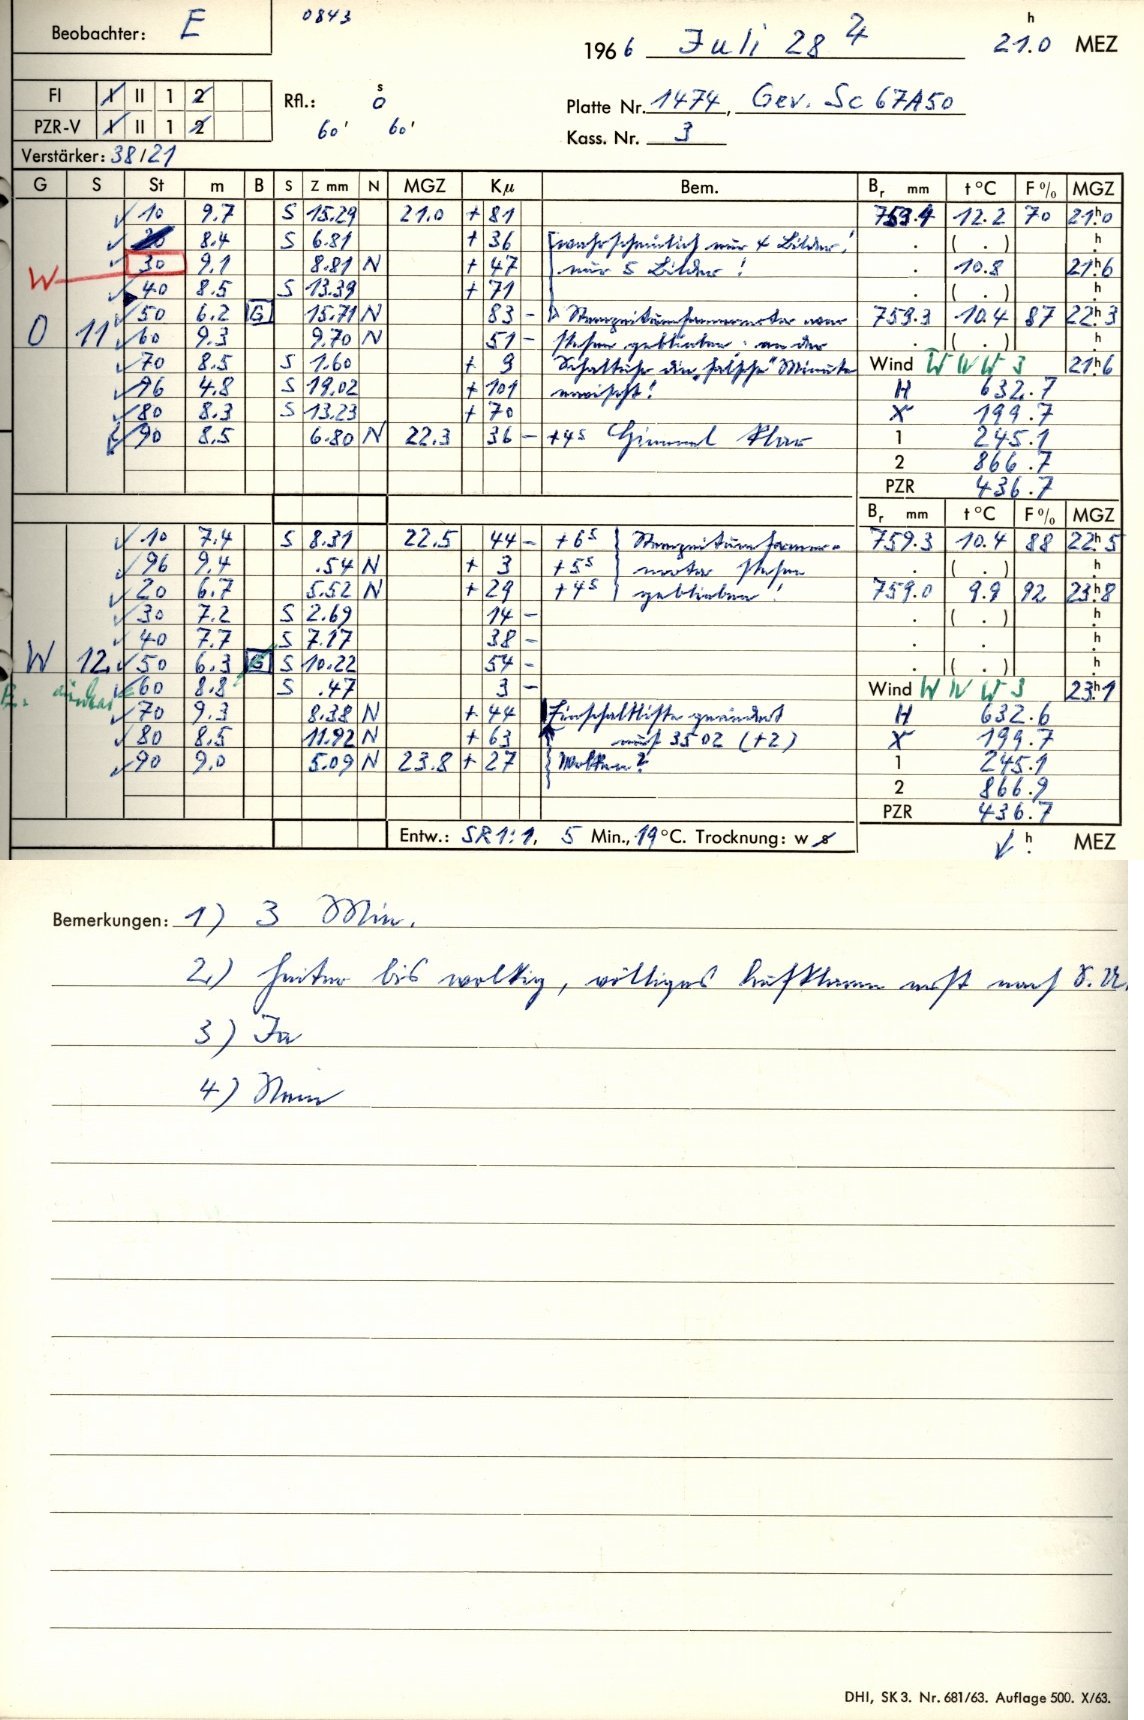 Beobachter: E
0843
1966 Juli 28 4 21.0 h MEZ
FI I II 1 2
Rfl.: 0 s
Platte Nr. 1474, Gev. Sc 67A50
PZR-V I II 1 2
60' 60'
Kass. Nr. 3
Verstärker: 38/21
G S St m B S Z mm N MGZ Kμ Bem. Br mm t °C F % MGZ
10 9.7 S 15.29 21.0 + 81 759.4 12.2 70 21h0
8.4 S 6.81 + 36 wahrscheinlich nur 4 Bilder! . ( . ) h
W 30 9.1 8.81 N + 47 nur 5 Bilder! . 10.8 21h6
40 8.5 S 13.39 + 71 . ( . ) h
50 6.2 G 15.71 N 83 - war 759.3 10.4 87 22h3
O 11 60 9.3 9.70 N 51 - stehen geblieben: an der . ( . ) h
70 8.5 S 1.60 + 9 Schaltuhr die "falsche" Minute Wind W N W 3 21h6
96 4.8 S 19.02 + 101 erwischt! H 632.7
80 8.3 S 13.23 + 70 X 199.7
90 8.5 6.80 N 22.3 36 - +4s Himmel klar 1 245.1
2 866.7
PZR 436.7
Br mm t °C F % MGZ
10 7.4 S 8.31 22.5 44 - +6s 759.3 10.4 88 22h5
96 9.4 .54 N + 3 +5s motor stehen . ( . ) h
20 6.7 5.52 N + 29 +4s geblieben! 759.0 9.9 92 23h8
30 7.2 S 2.69 14 - . ( . ) h
40 7.7 S 7.17 38 - . h
W 12 50 6.3 G S 10.22 54 - . ( . ) h
60 8.8 S .47 3 - Wind W N W 3 23h1
70 9.3 8.38 N + 44 Einschaltliste geändert H 632.6
80 8.5 11.92 N + 63 auf 3502 (+2) X 199.7
90 9.0 5.09 N 23.8 + 27 Wolken? 1 245.1
2 866.9
PZR 436.7
Entw.: SR 1:1, 5 Min., 19 °C. Trocknung: w s
h MEZ
Bemerkungen: 1) 3 Min.
2) heiter bis wolkig, völliges Aufklaren erst nach S.U.
3) Ja
4) Nein
DHI, SK 3. Nr. 681/63. Auflage 500. X/63.